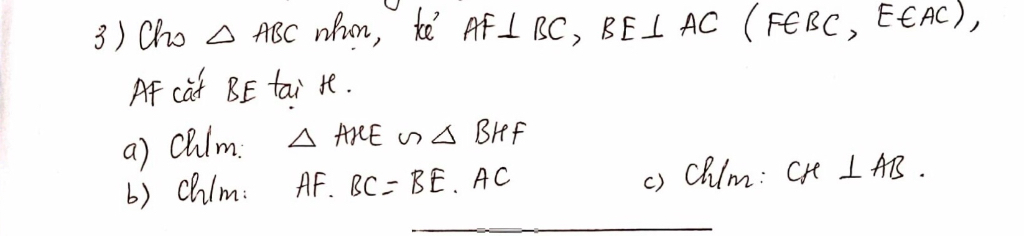 3) Cho △ ABC nhọn, kẻ AF⊥ BC, BE⊥ AC (F∈BC, E∈AC),
AF cắt BE tại H.
a) Chlm: △ AHE ∽ △ BHF
b) Chlm: AF. BC = BE. AC
c) Chlm: CH ⊥ AB.